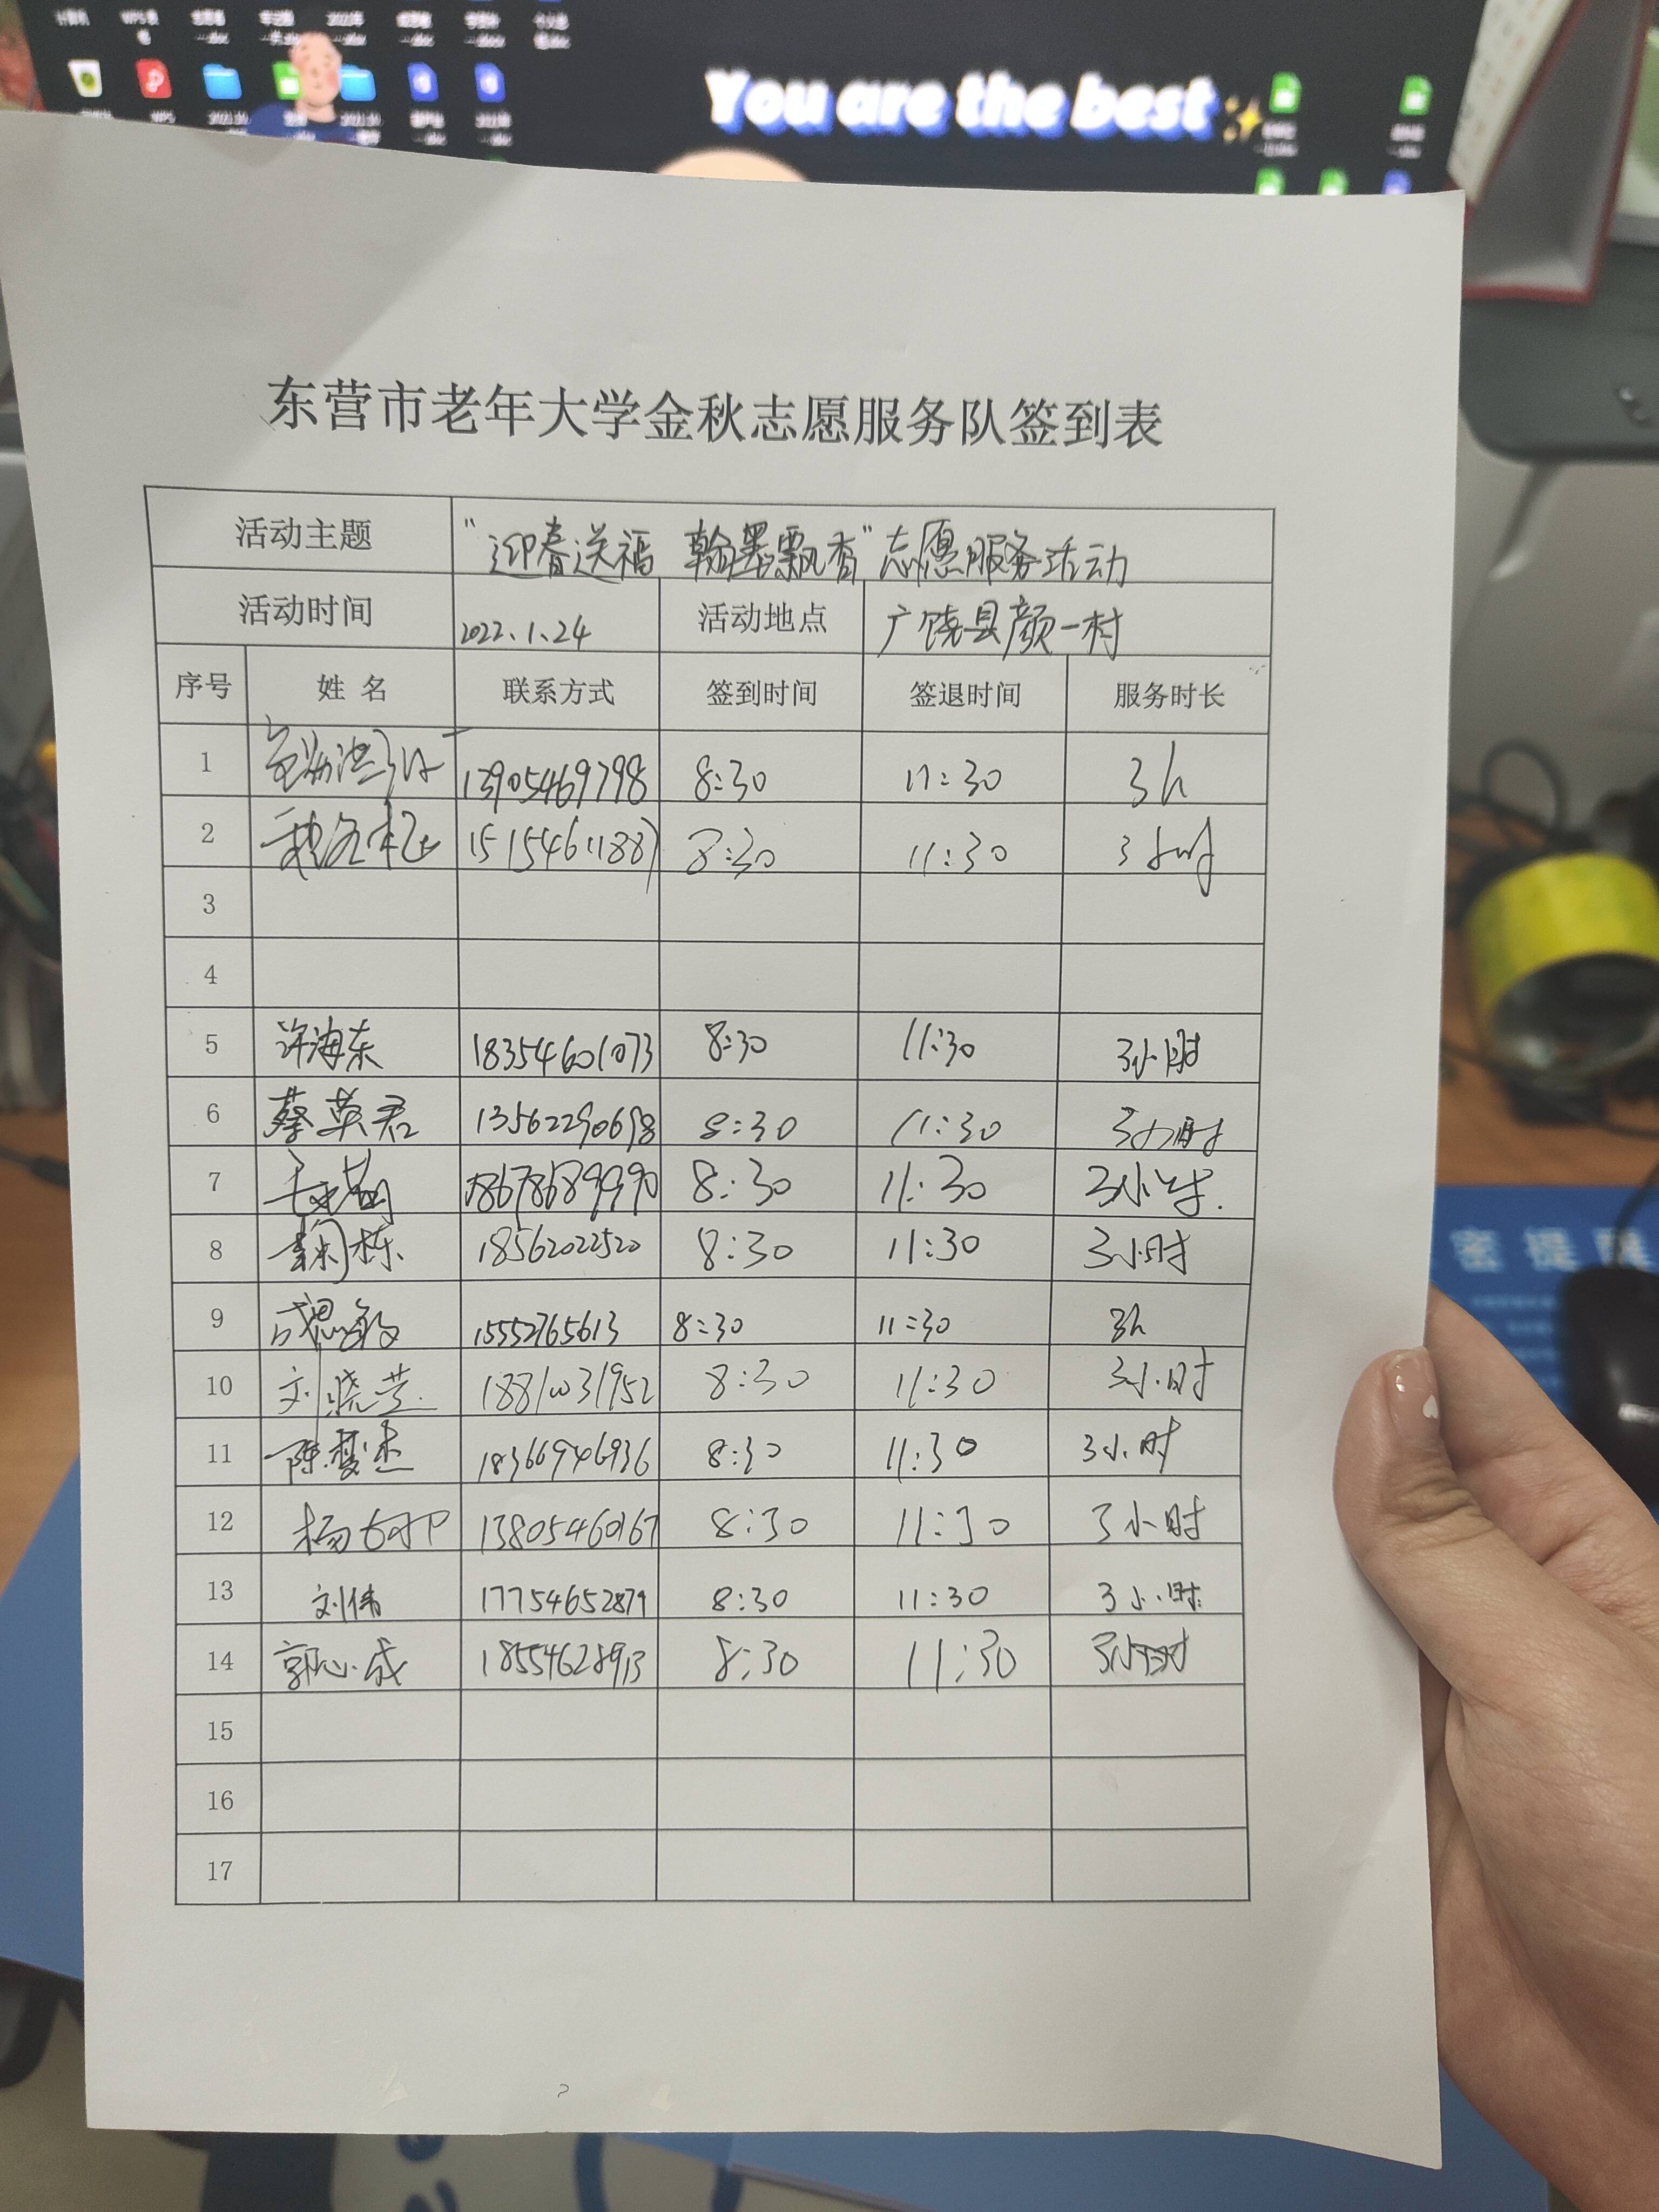 You are the best
东营市老年大学金秋志愿服务队签到表
活动主题 "迎春送福 翰墨飘香"志愿服务活动
活动时间 2022.1.24 活动地点 广饶县颜一村
序号 姓名 联系方式 签到时间 签退时间 服务时长
1 13905469798 8:30 11:30 3h
2 15154611887 8:30 11:30 3小时
3
4
5 许海东 18354601073 8:30 11:30 3小时
6 蔡英君 13562290698 8:30 11:30 3小时
7 18678689990 8:30 11:30 3小时.
8 18562022520 8:30 11:30 3小时
9 15552765613 8:30 11:30 3h
10 刘晓芸 18810031952 8:30 11:30 3小时
11 陈梦杰 18366946936 8:30 11:30 3小时
12 13805460167 8:30 11:30 3小时
13 刘伟 17754652879 8:30 11:30 3小时
14 郭心成 18554628913 8:30 11:30 3小时
15
16
17
密 提 醒